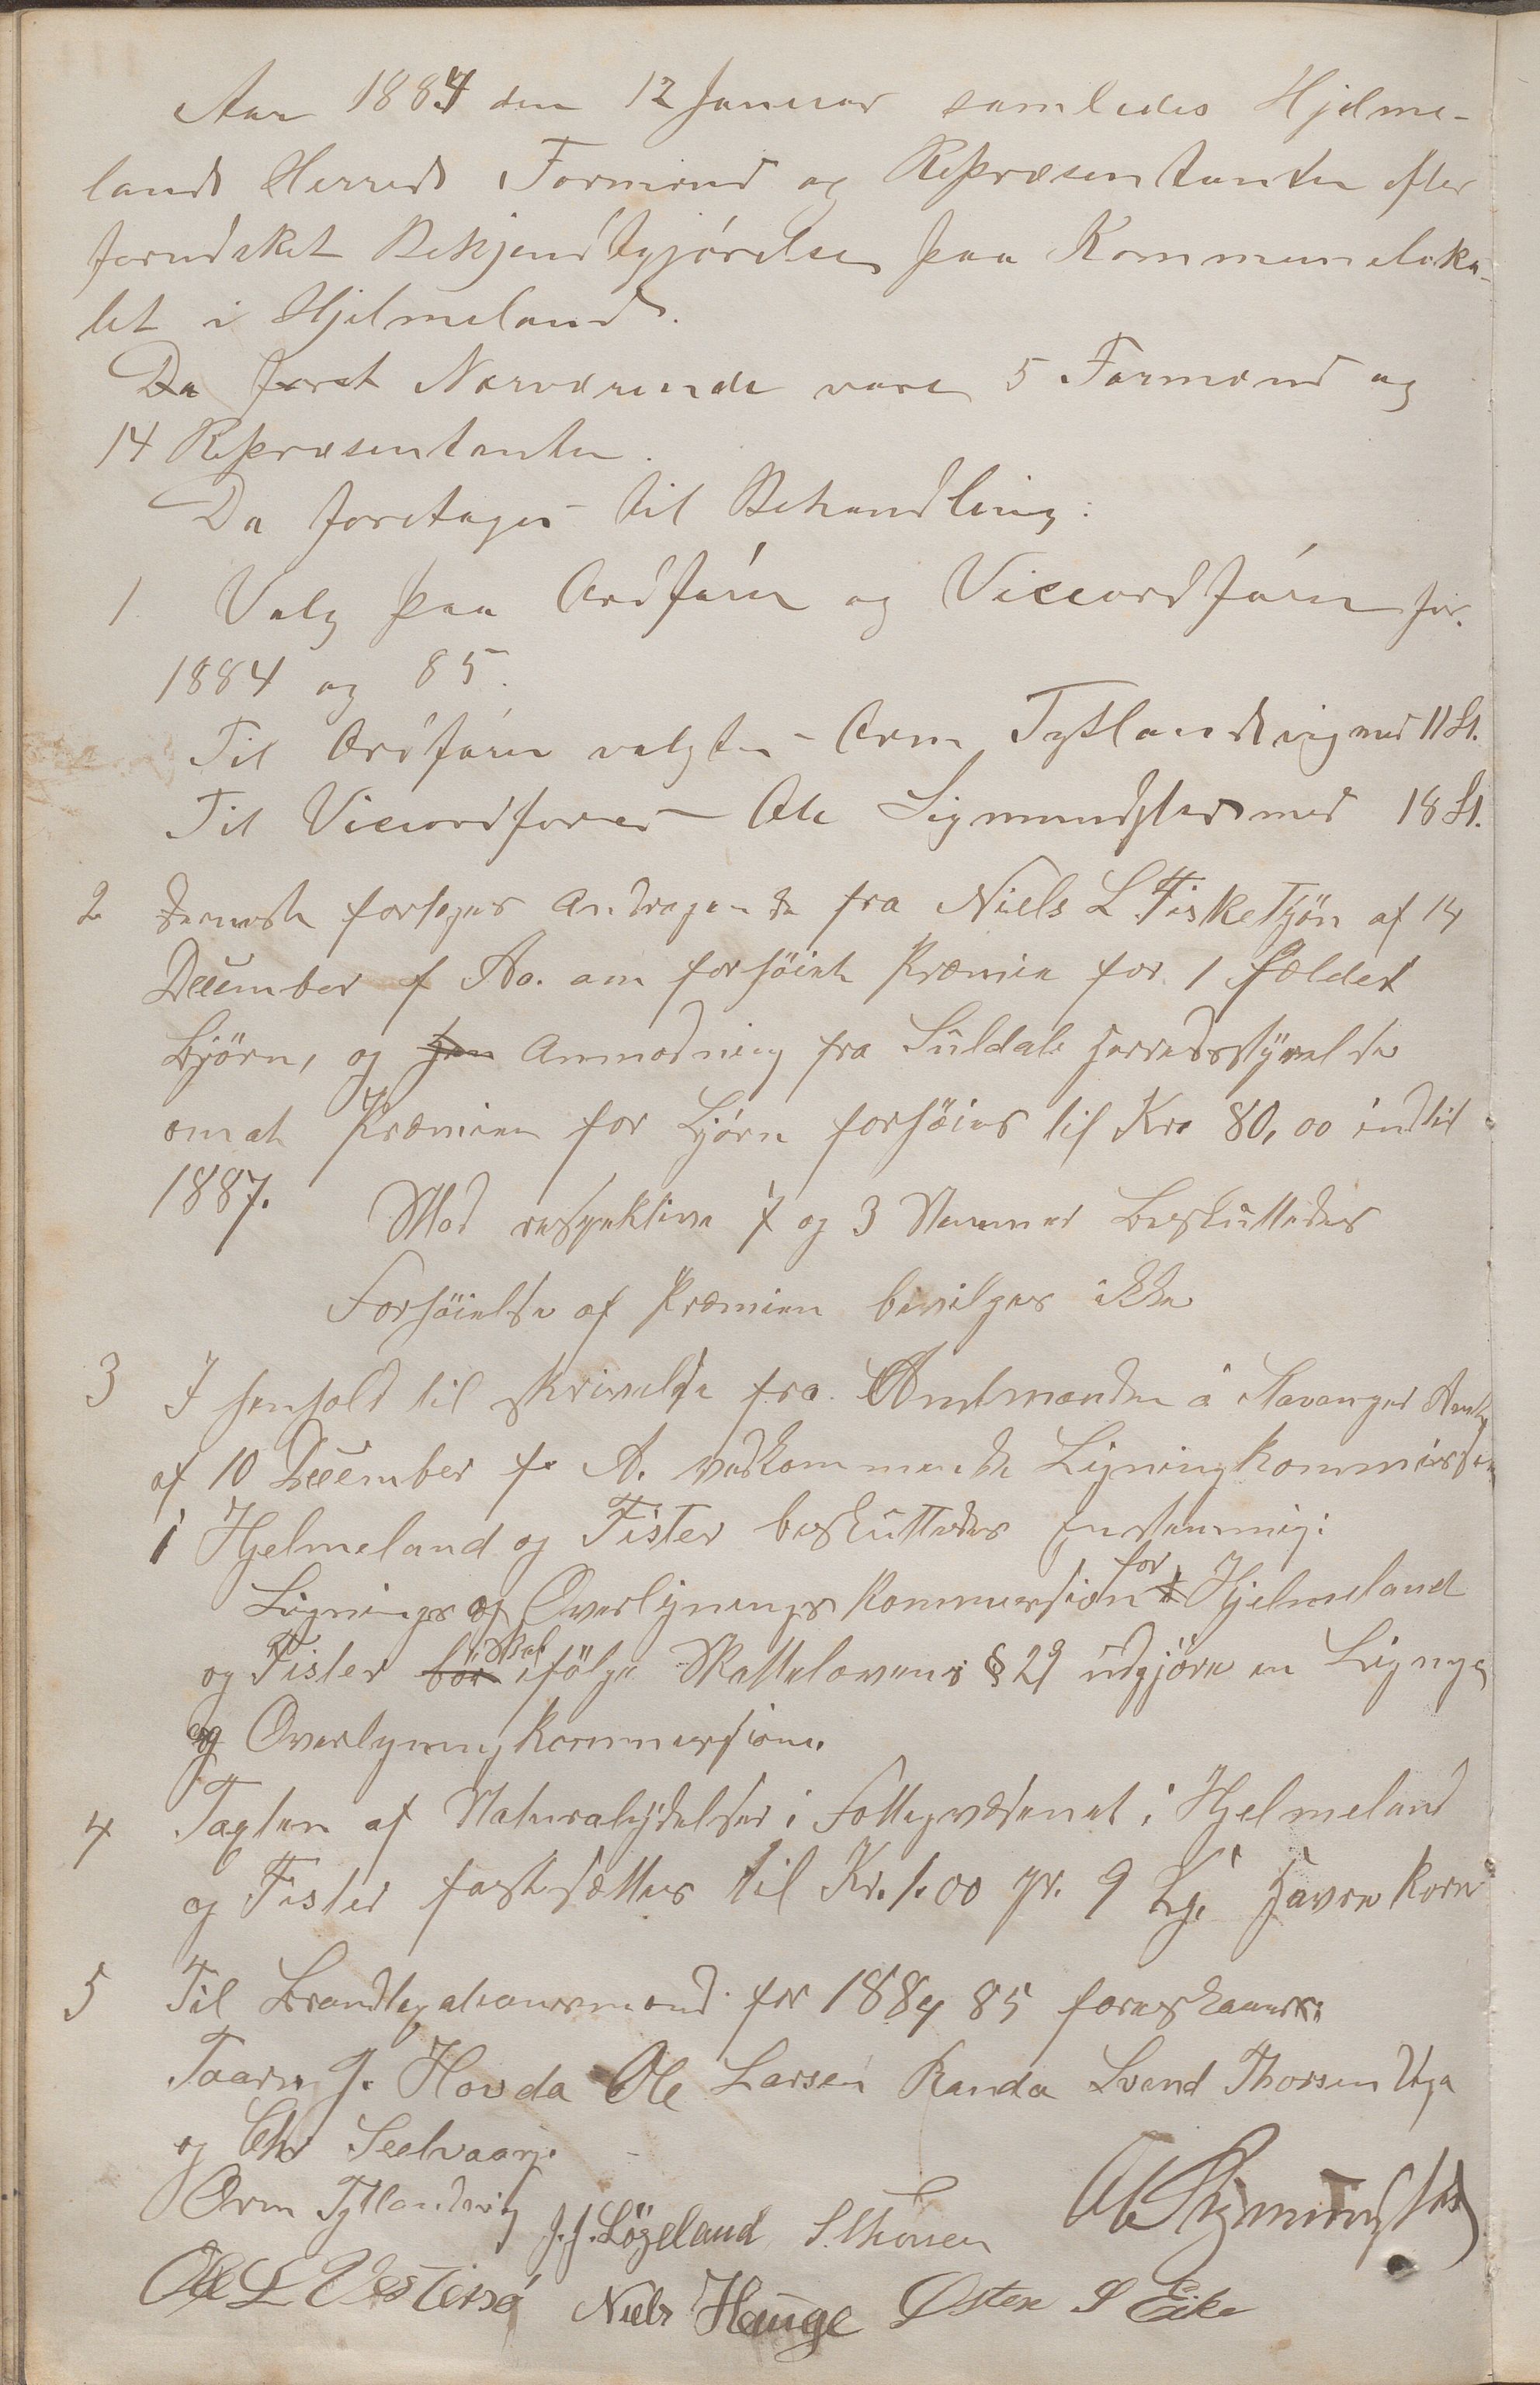 Aar 1884 den 12 Januar samledes Hjelme-
lands Herreds Formænd og Repræsentanter efter
forudsket Bekjendtgjørelse paa Kommuneloka-
let i Hjelmeland.
Da foret Nærværende vare 5 Formænd og
14 Repræsentanter.
Da foretages til Behandling:
1 Valg paa Ordfører og Viceordfører for
1884 og 85.
Til Ordfører valgtes Orm Tytlandsvig med 11 St.
Til Viceordfører Ole Sigmundstad med 18 St.
2 Dernest forlæges Andragende fra Niels L Fisketjön af 14
December f Ao. om forhöiet Præmie for 1 fældet
Björn, og Anmodning fra Suldals Herredsstyrelse
om at Præmien for Björn forhöies til Kr. 80,00 indtil
1887.
Mod respektive 7 og 3 Stemmer besluttedes
Forhöielse af Præmien bevilges ikke
3 I Henhold til Skrivelse fra Amtmanden i Stavanger Amt
af 10 December f. A. vedkommende Ligningskommission
i Hjelmeland og Fister besluttedes Enstemmig:
Lignings og Overlignings kommission for Hjelmeland
og Fister bör skal ifölge Skattelovens § 29 udgjöre en Lignings
og Overligningskommission.
4 Taxten af Naturalydelser i Fattigvæsenet i Hjelmeland
og Fister fastsættes til Kr. 1.00 pr. 9 Kg. Havrekorn
5 Til Brandtaxationsmænd for 1884 85 foreslaaes:
Taarn J. Hovda Ole Larsen Randa Svend Thorsen
og Chr Seelvaag.
Orm Tytlandsvig J.J. Lögeland S. Thorsen Ole Sigmundstad
Ole L Vestersø Niels Hauge Østen S Eike